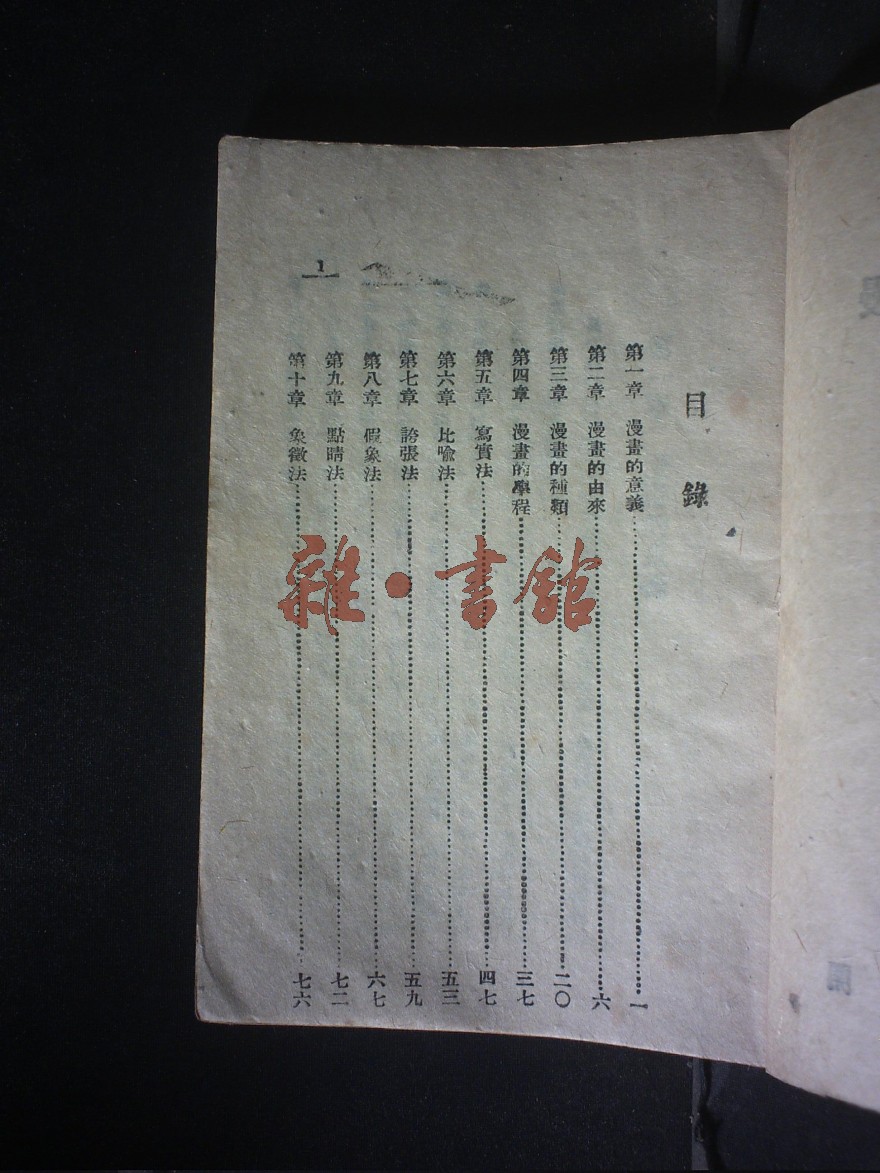 目錄
第一章 漫畫的意義………一
第二章 漫畫的由來………六
第三章 漫畫的種類………二〇
第四章 漫畫的學程………三七
第五章 寫實法………四七
第六章 比喻法………五三
第七章 誇張法………五九
第八章 假象法………六七
第九章 點睛法………七二
第十章 象徵法………七六
1
雜·書館